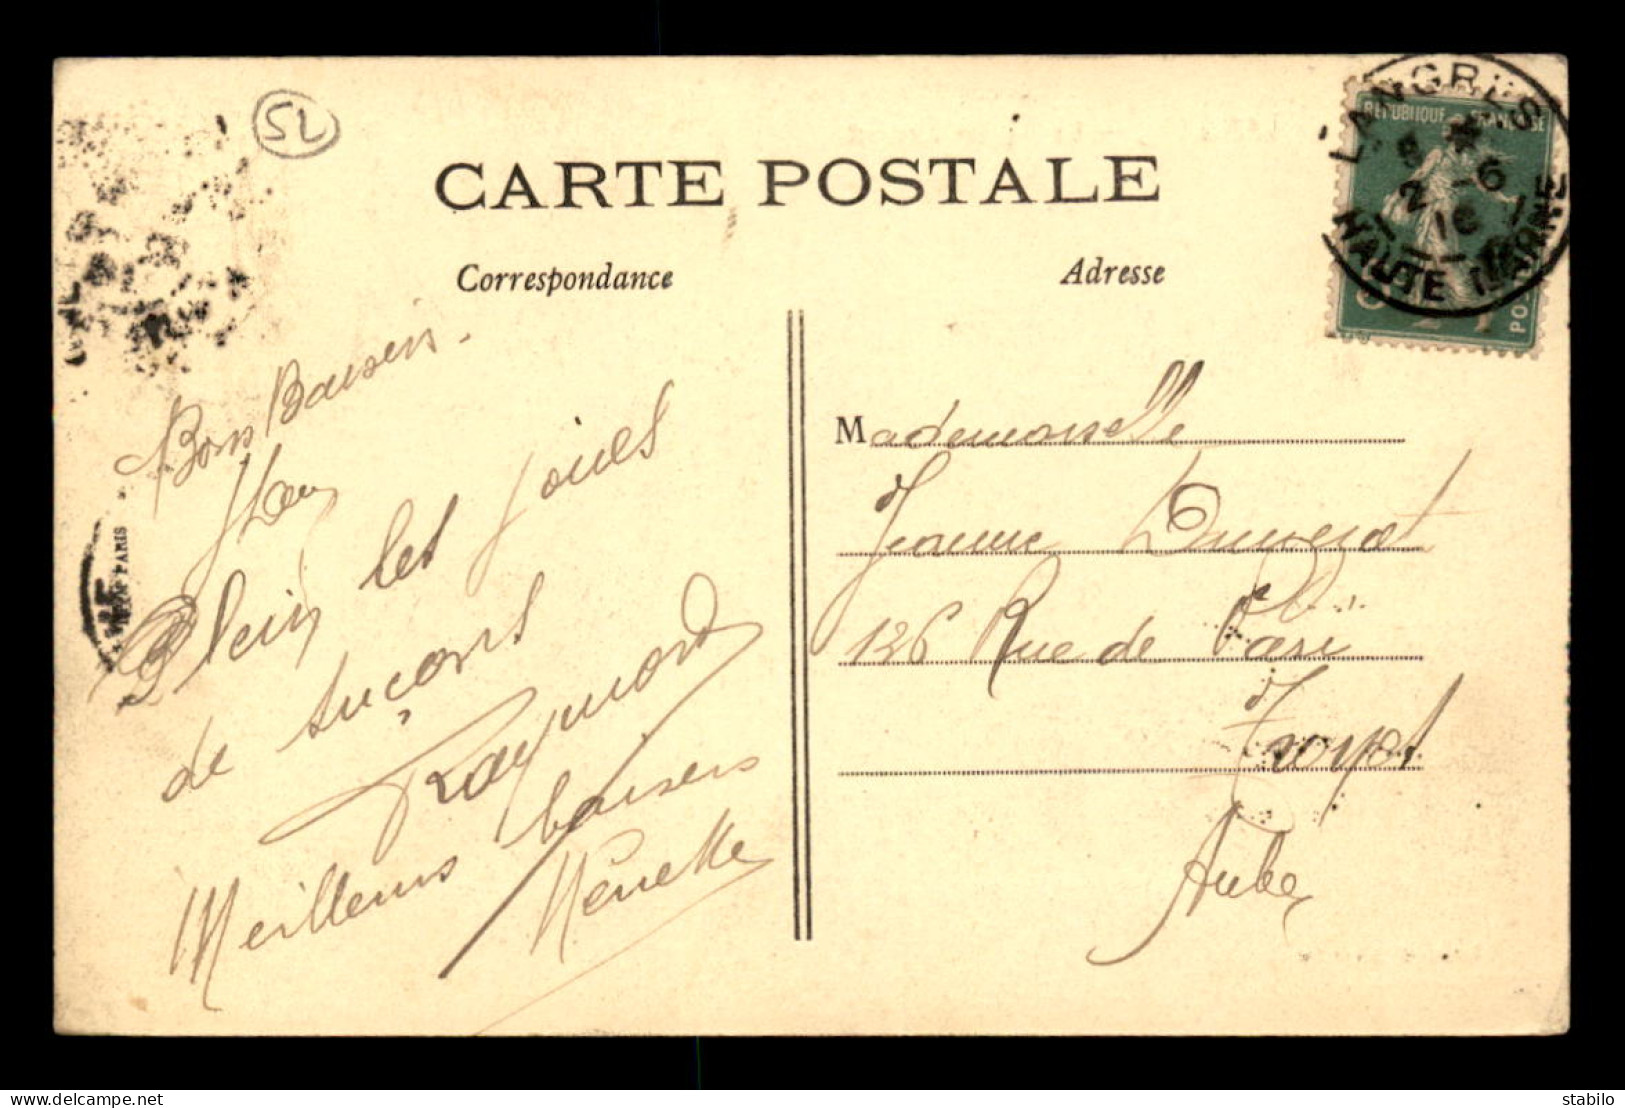 52
CARTE POSTALE
Correspondance
Adresse
RÉPUBLIQUE FRANÇAISE
LANGRES
2 -6
16
HAUTE MARNE
Bons Baisers.
Plein les joues
de suçons
Raymond
Meilleurs baisers
PARIS
Mademoiselle
Jeanne
126 Rue de Paris
Troyes
Aube
stabilo